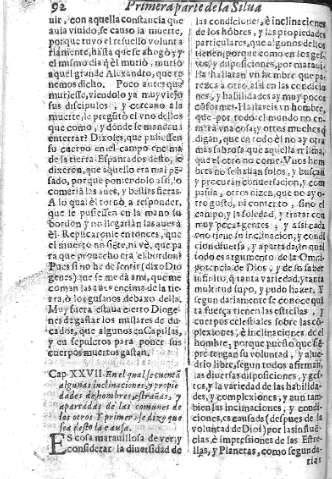 92 Primera parte de la Silua
uir, con aquella constancia que
auia viuido, se causo la muerte,
porque tuuo el resuello volunta
riamente, hasta que se ahogò y y
el mismo dia, que el murio, murio
aquel grande Alexandro, que te-
nemos dicho. Poco antes que
muriesse, viendolo ya muy viejo
sus discipulos, y cercano a la
muerte, le pregũtò el vno dellos
que como, y dónde se mandaua
enterrar? Dixoles, que pusiessen
su cuerpo en el campo encima
de la tierra. Espantados desto, le
dixeron, que aquello era mal pẽ-
sado, porque poniendolo assi, lo
comeriã las aues, y bestias fieras.
A lo qual el tornó a responder,
que le pusiessen en la mano su
bordon y no llegarian las aues à
èl. Replicaronle entonces, que
el muerto no siente, ni vè, que pa
ra que prouecho era el bordon?
Pues si no he de sentir (dixo Dio
genes) que se me dà a mi, que me
coman las aues encima de la tier
ra, ò los gusanos debaxo della.
Muy fuera estaua cierto Dioge-
nes de gastar los millares de du-
cados, que algunos en Capillas,
y en sepulcros para poner sus
cuerpos muertos gastan.
Cap XXVII. En el qual se cuentã
algunas inclinaciones, y propie
dades de hombres, estrañas, y
apartadas de las comunes de
los otros Y primero se dize que
sea desto la causa.
ES cosa marauillosa de ver, y
considerar la diuersidad de
las condiciones, è inclinaciones
de los hõbres, y las propiedades
particulares, que algunos dellos
tienen, porque como en los ges-
tos, assi difieren en las maneras.
Ha hallaran vn hõbre que pa-
rezca a otro, assi en las condicio
nes, y habilidades ay muy pocos
cõformes. Hallareis vn hombre,
que por todo el mundo no co-
merà vna cosa; y otros muchos q̃
digan, que en todo el no ay otra
mas sabrosa que aquella misma,
que el otro no come. Vnos hom
bres no se hallan solos, y buscan
y procuran conuersacion, y com
pañia, otros dizen, que no ay o-
tro gusto, ni contento, sino el
campo, y la soledad, y tratar con
muy pocas gentes, y assi cada
vno tiene su inclinacion, y condi
cion diuersa, y apartada, en qual
todo es argumento de la Omni
potencia de Dios, y de su saber
infinito, q̃ tanta variedad, y tanta
multitud supo, y pudo hazer. Y
segun dariamente se conoce quã
ta fuerça tienen las estrellas, y
cuerpos celestiales sobre las cõ-
plexiones, è inclinaciones de el
hombre, porque puesto que siẽ-
pre tengan su voluntad, y alue-
drio libre, segun todos afirman,
las diuersas disposiciones, y ges-
tos, y la variedad de las habilida-
des, y complexiones, y aun tam-
bien las inclinaciones, y condi-
ciones, es causada (despues de la
voluntad de Dios) por las influẽ-
cias, è impresiones de las Estre-
llas, y Planetas, como segunda-
rias